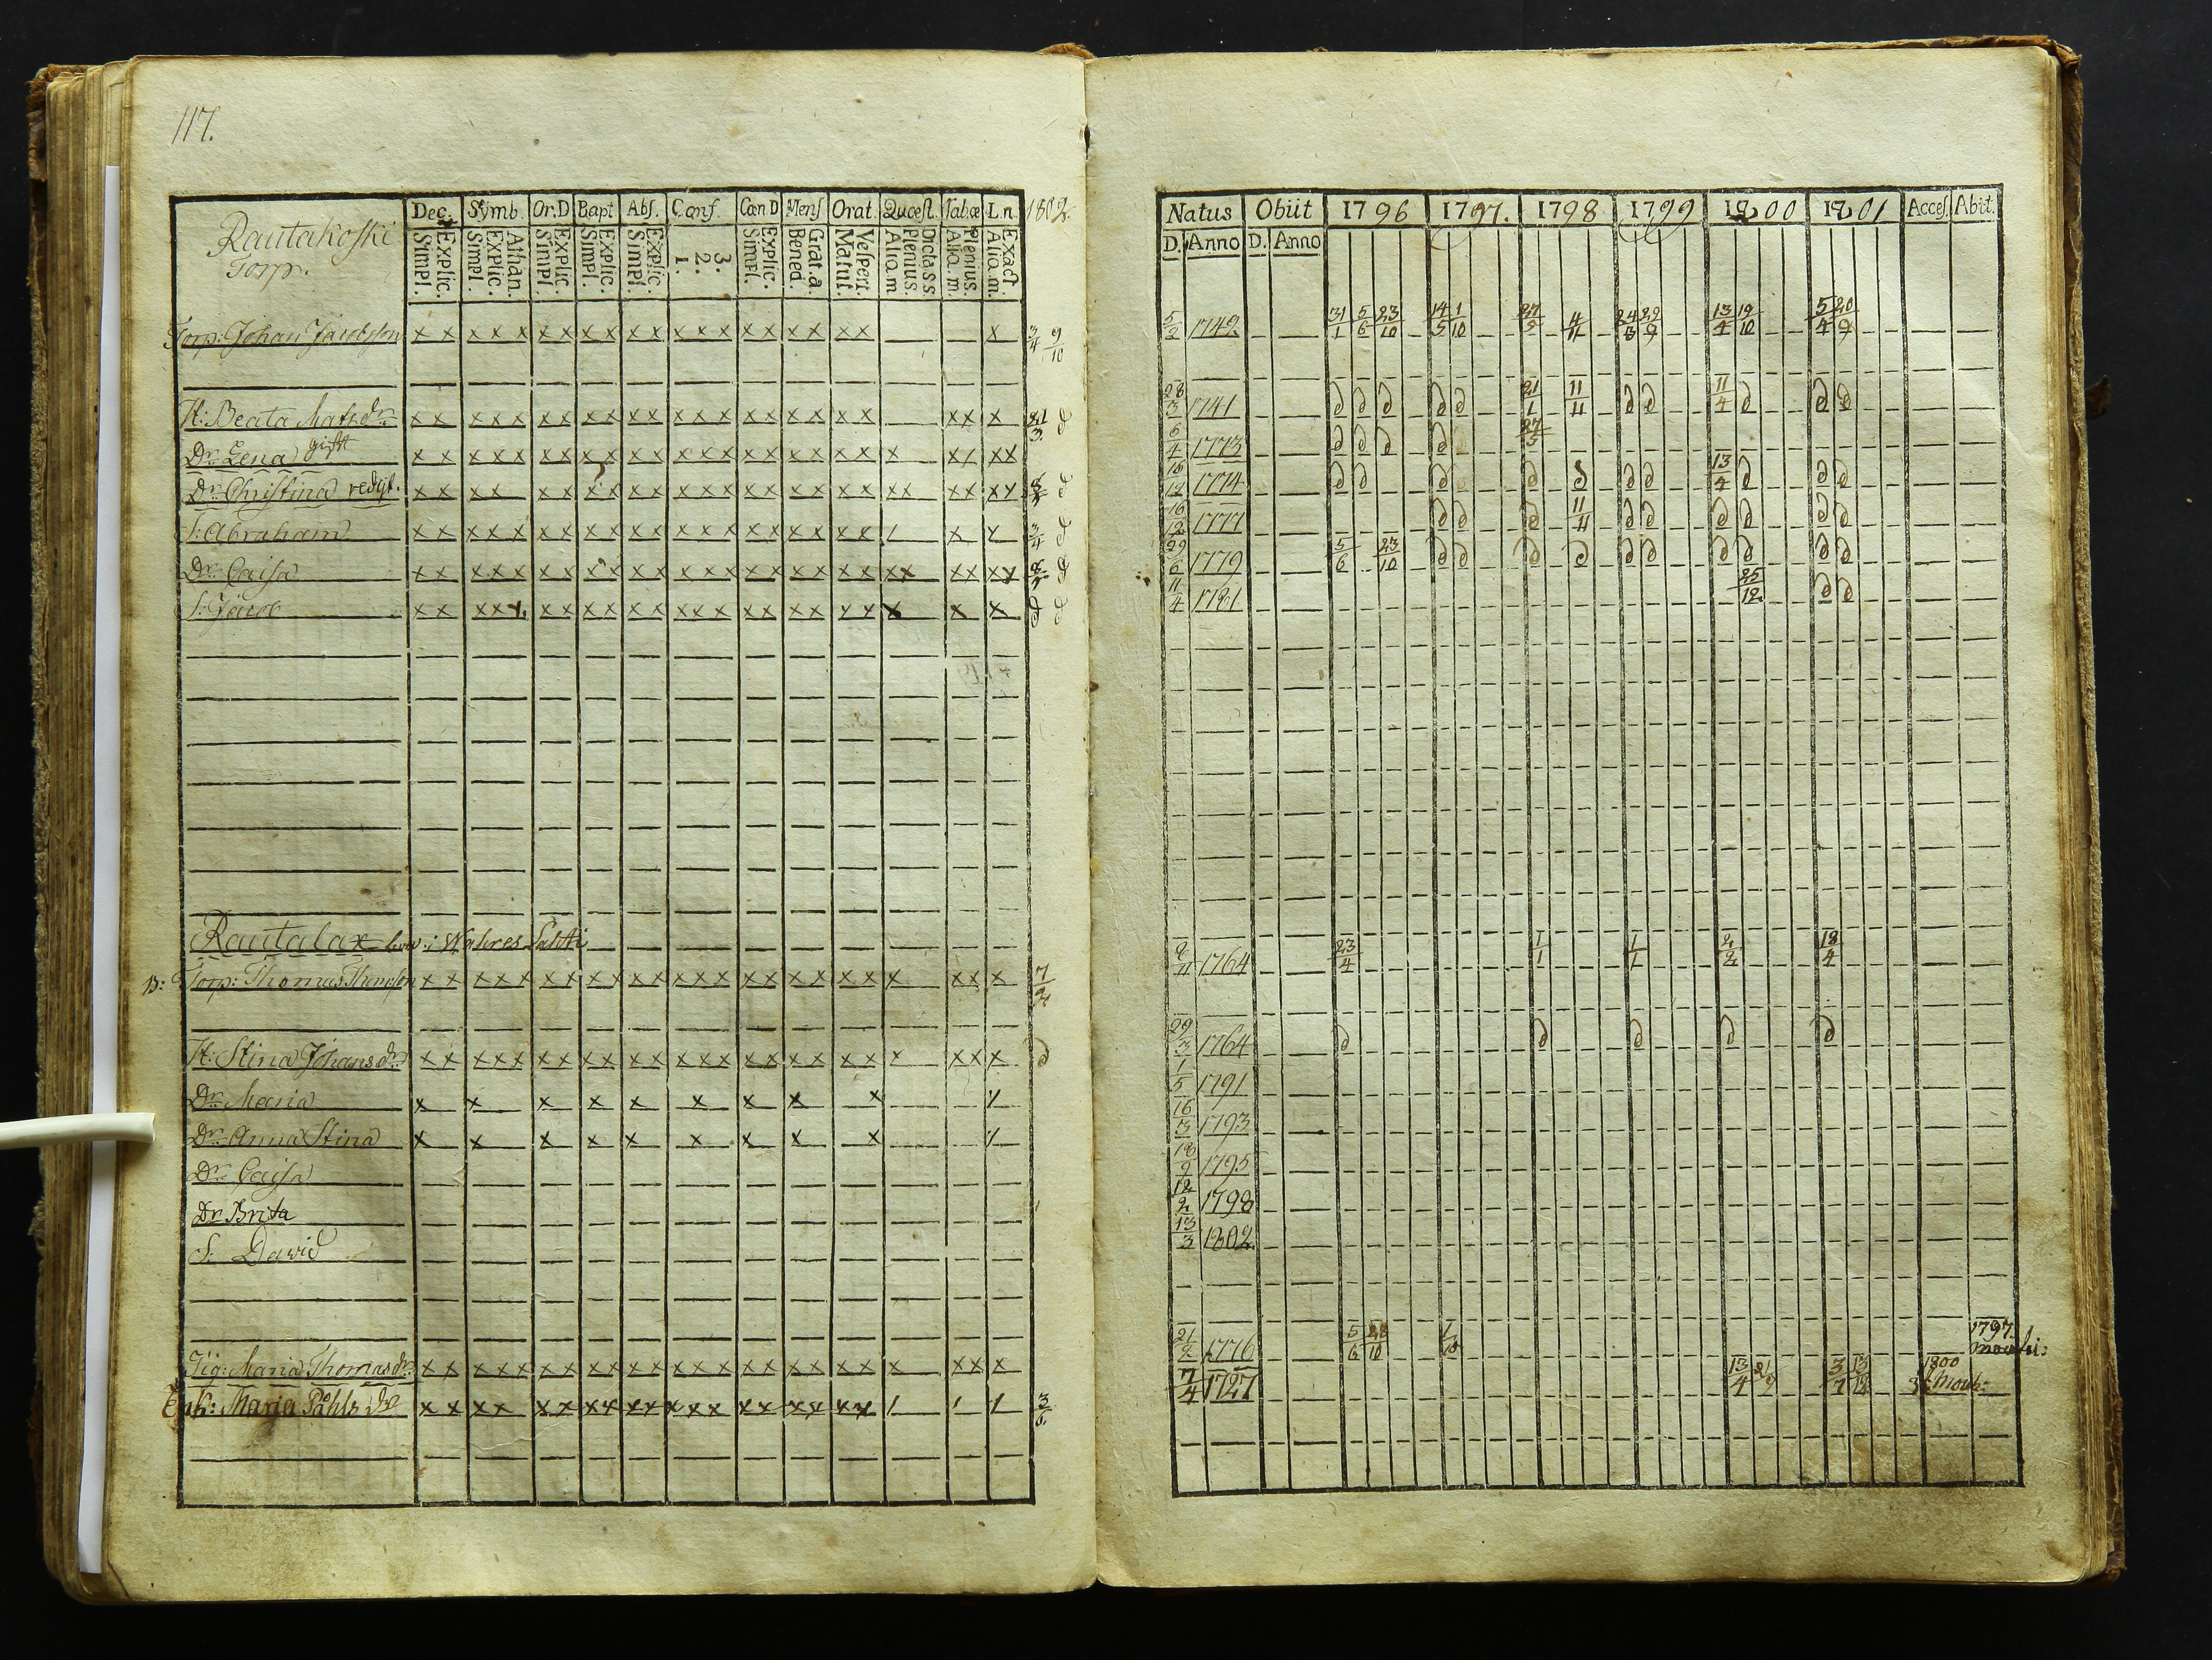 117.
Dec. Symb. Or.D Bapt. Abs. Conf. Cœn D Mens Orat. Quœst. Tabœ L.n. 1802.
Rautakoski
Torp.
Simpl. Explic. Simpl. Explic. Athan. Simpl. Explic. Simpl. Explic. Simpl. Explic. 1. 2. 3. Simpl. Explic. Bened. Grat.a. Matut. Vespert. Aliq. m. Plenius. Dicta.s.s. Aliq. m. Plenius. Aliq. m. Exact.
Torp: Johan Jacobsson x x x x x x x x x x x x x x x x x x x x x 3/4 9/10
H: Beata Matsdr x x x x x x x x x x x x x x x x x x x x x x x 21/3 d
Dr. Lena gift x x x x x x x x x x x x x x x x x x x x x x x x
Dr. Christina redigt. x x x x x x x x x x x x x x x x x x x x x x x x x d
S: Abraham x x x x x x x x x x x x x x x x x x x x / x x 3/4 d
Dr. Caisa x x x x x x x x x x x x x x x x x x x x x x x x x x d
S: Jacob x x x x x x x x x x x x x x x x x x x x x x x d d
Rautalax
B: Torp: Thomas Thomsson x x x x x x x x x x x x x x x x x x x x x x x x 7/2
H: Stina Johansdr x x x x x x x x x x x x x x x x x x x x x x x x d
Dr. Maria x x x x x x x x x /
Dr. Anna Stina x x x x x x x x x /
Dr. Caisa
Dr. Brita
S. David
Pig: Maria Thomasdr x x x x x x x x x x x x x x x x x x x x x x x x
Enk: Maria Påhls dr x x x x x x x x x x x x x x x x x x x / / / 3/6
Natus Obiit 1796 1797. 1798 1799 1800 1801 Acces. Abit.
D. Anno D. Anno
5/2 1742 31/1 5/6 23/10 14/5 1/10 27/5 4/11 24/3 29/9 13/4 19/10 5/4 20/9
28/3 1741 d d d d d 21/1 11/11 d d 11/4 d d d
6/4 1773 d d d d 27/5
16/12 1774 d d d d d d d 13/4 d d d
16/12 1777 d d d 11/11 d d d d d d
29/6 1779 5/6 23/10 d d d d d d d d d d
11/4 1781 25/12 d d
1764 23/4 1/1 1/1 2/2 18/4
29/3 1764 d d d d d
1/5 1791
16/3 1793
18/9 1795
12/2 1798
13/3 1802.
21/2 1776 5/6 1/10 1797
7/4 1727 13/4 21/9 3/7 13/12 1800